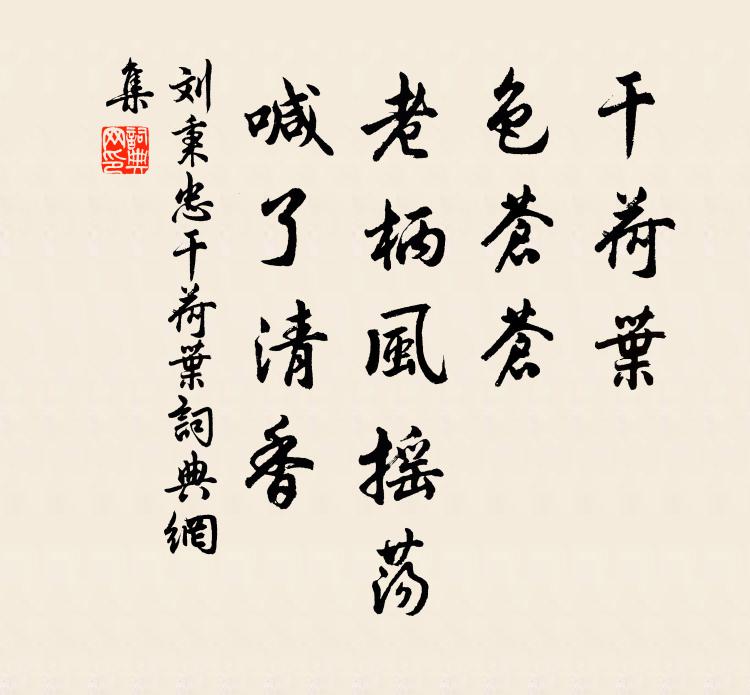 干荷葉
色蒼蒼
老柄風摇荡
喊了清香
刘秉忠干荷葉詞典網
集
詞典網印